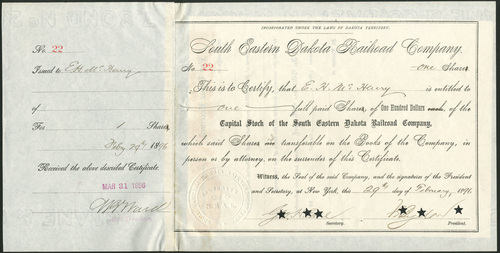 No. 22
Issued to E. H. Mc Henry
of
For 1 Shares
Feby 29th 1896
Received the above described Certificate.
MAR 21 1896
INCORPORATED UNDER THE LAWS OF DAKOTA TERRITORY.
South Eastern Dakota Railroad Company.
No. 22 one Shares
This is to Certify, that E. H. Mc Henry is entitled to
one full paid Shares of One Hundred Dollars each, of the
Capital Stock of the South Eastern Dakota Railroad Company,
which said Shares are transferable on the Books of the Company, in
person or by attorney, on the surrender of this Certificate.
Witness, the Seal of the said Company, and the signature of the President
and Secretary, at New York, this 29th day of February, 1896.
Secretary. President.